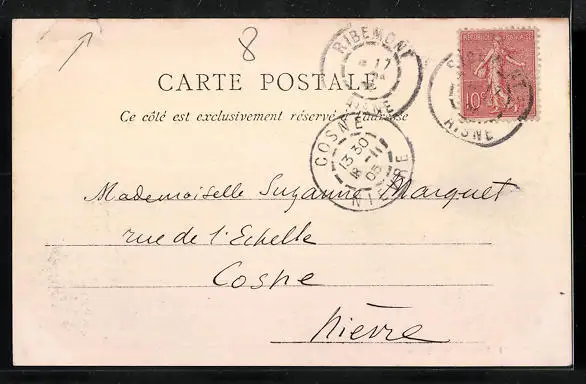 8
RIBEMONT
17
AISNE
REPUBLIQUE FRANÇAISE
10c
AISNE
CARTE POSTALE
Ce côté est exclusivement réservé à l'adresse
COSNE
13 30
8 - 11
05
NIÈVRE
Mademoiselle Suzanne Marquet
rue de l'Echelle
Cosne
Nièvre